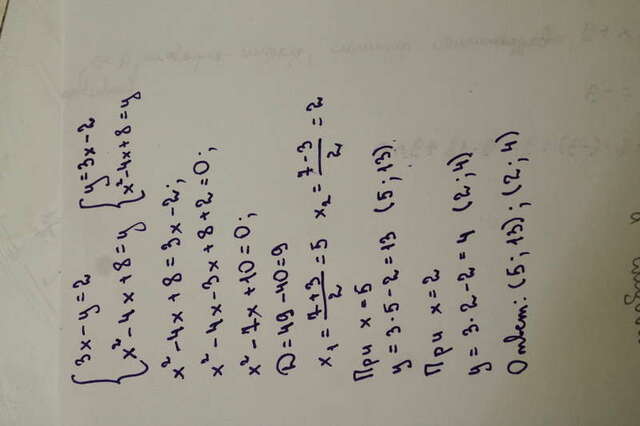 {3x-y=2 {y=3x-2
x²-4x+8=y x²-4x+8=y
x²-4x+8=3x-2;
x²-4x-3x+8+2=0;
x²-7x+10=0;
D=49-40=9
x₁=(7+3)/2=5 x₂=(7-3)/2=2
При x=5
y=3·5-2=13 (5;13)
При x=2
y=3·2-2=4 (2;4)
Ответ: (5;13); (2;4)